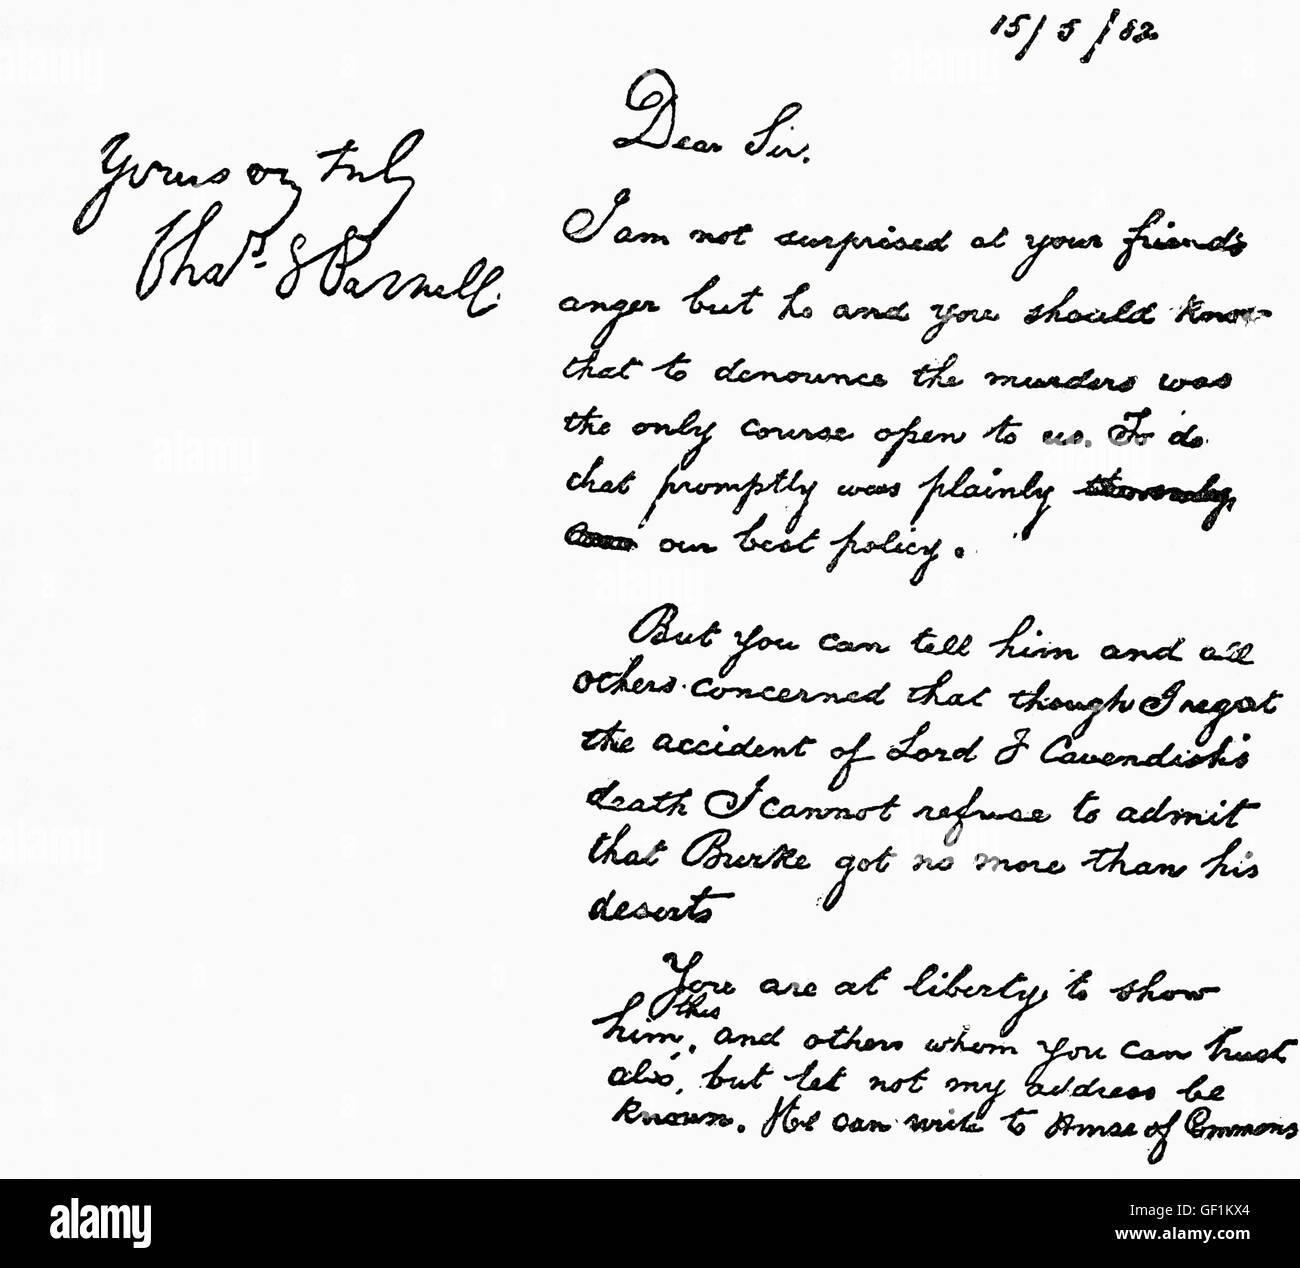 15/5/82
Dear Sir.
I am not surprised at your friend's
anger but he and you should know
that to denounce the murders was
the only course open to us. To do
that promptly was plainly
our best policy.
But you can tell him and all
others concerned that though I regret
the accident of Lord F Cavendish's
death I cannot refuse to admit
that Burke got no more than his
deserts
You are at liberty to show
him this, and others whom you can trust
also, but let not my address be
known. He can write to House of Commons
Yours very truly
Chas. S Parnell.
alamy
Image ID: GF1KX4
www.alamy.com